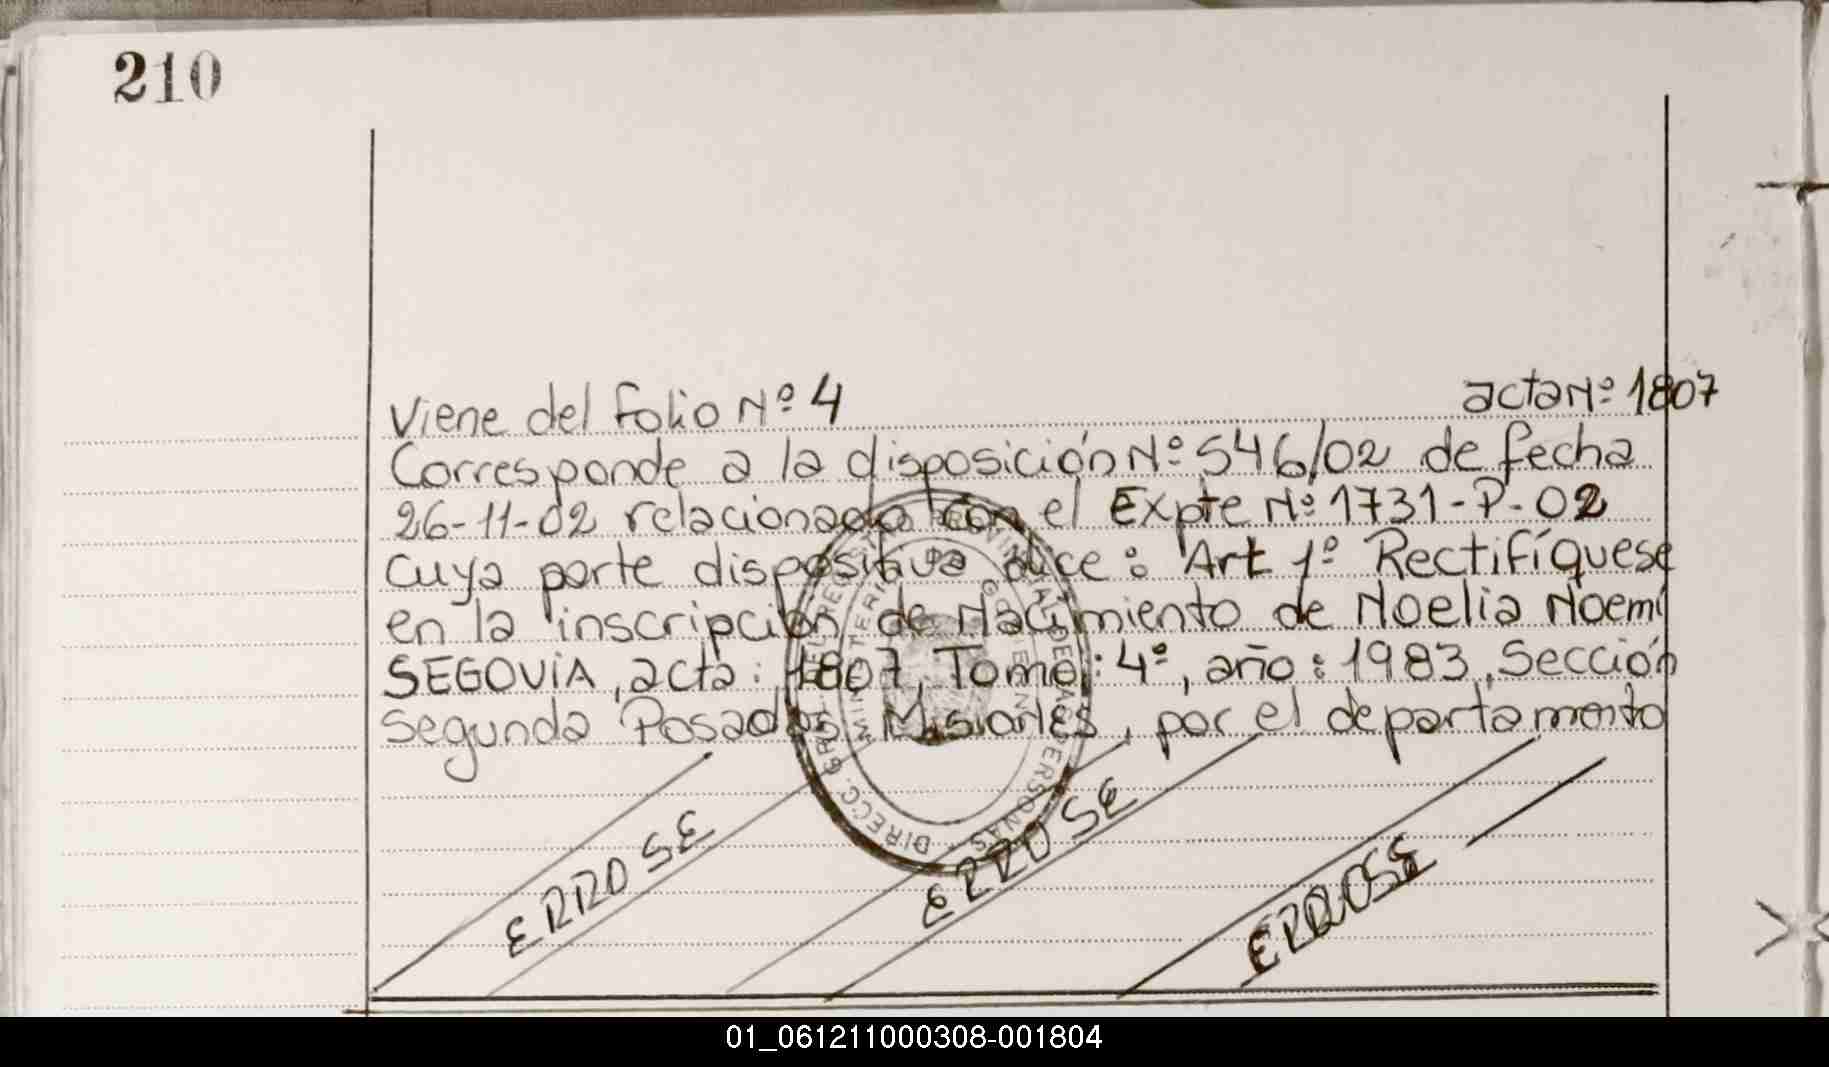 210
Viene del folio Nº 4 acta Nº 1807
Corresponde a la disposición Nº 546/02 de fecha
26-11-02 relacionado con el Expte Nº 1731-P-02
Cuya parte dispositiva dice: Art 1º Rectifíquese
en la inscripción de Nacimiento de Noelia Noemí
SEGOVIA, acta: 1807, Tomo: 4º, año: 1983, Sección
Segunda Posadas Misiones, por el departamento
DIRECC. GRAL. DEL REGISTRO PROVINCIAL DE LAS PERSONAS
ERROSE
ERROSE
ERROSE
01_061211000308-001804